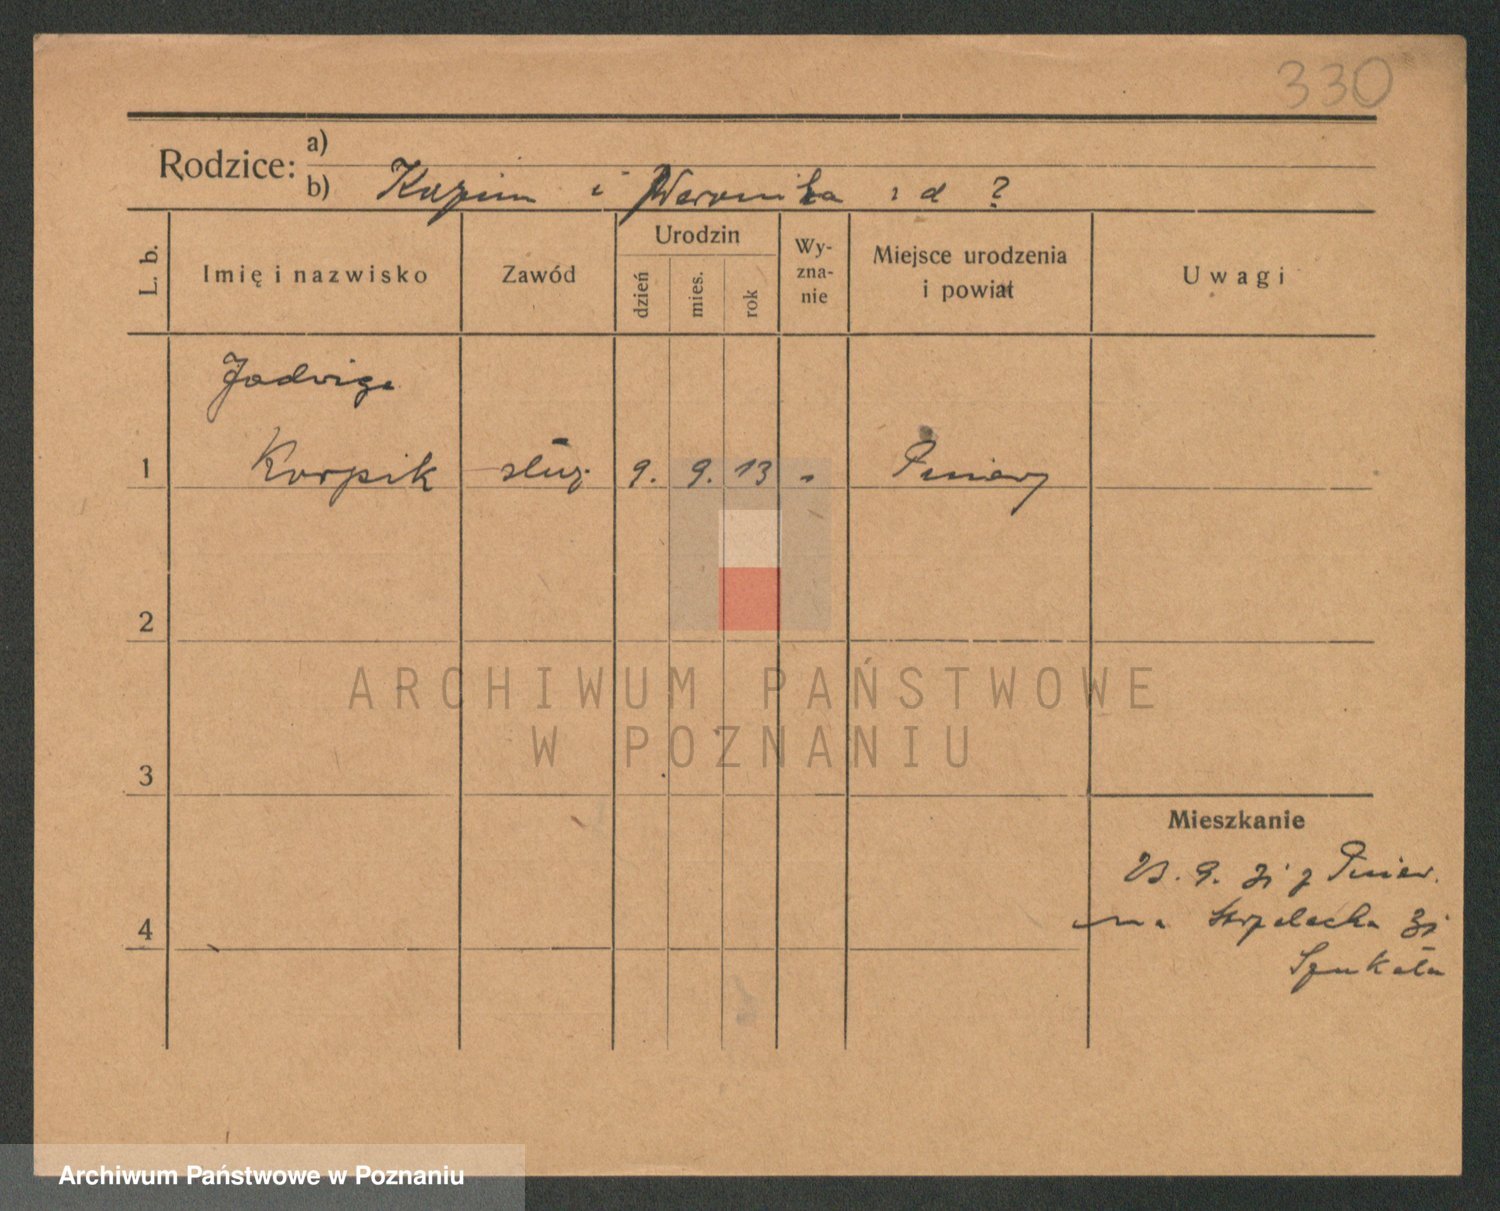 330
Rodzice: a)
b) i Weronika z d ?
L. b. Imię i nazwisko Zawód Urodzin dzień mies. rok Wy-zna-nie Miejsce urodzenia i powiat Uwagi
Jadwiga
1 Karpik służ. 9. 9. 13 Pniewy
2
3
4
Mieszkanie
9. 31 z Pniew.
na Strzelecka 31
Szukała
ARCHIWUM PAŃSTWOWE
W POZNANIU
Archiwum Państwowe w Poznaniu